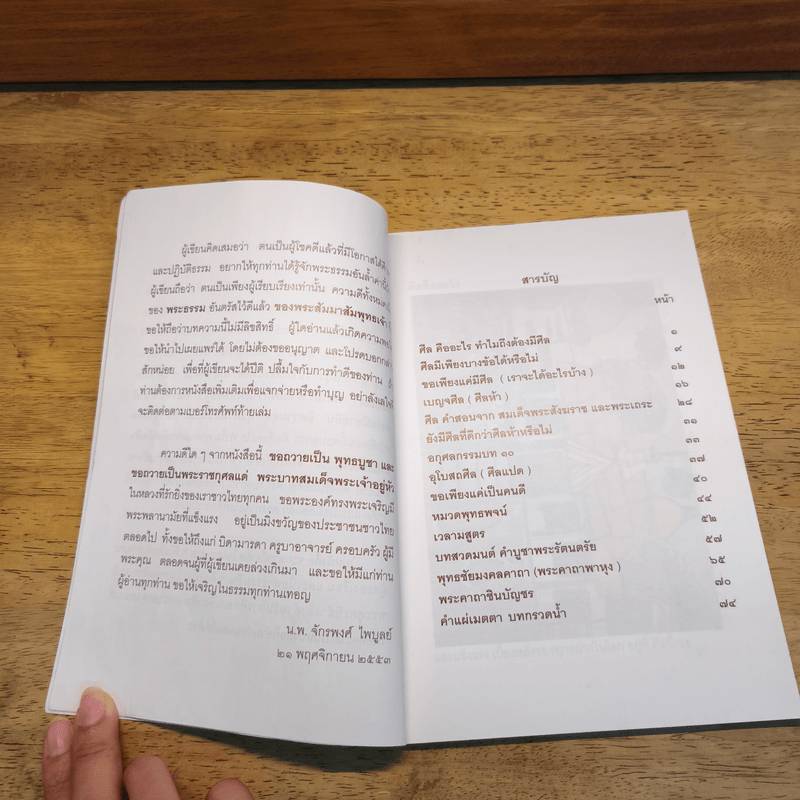 ผู้เขียนคิดเสมอว่า ตนเป็นผู้โชคดีแล้วที่มีโอกาสได้
และปฏิบัติธรรม อยากให้ทุกท่านได้รู้จักพระธรรมอันล้ำค่านี้
ผู้เขียนถือว่า ตนเป็นเพียงผู้เรียบเรียงเท่านั้น ความดีทั้งหมด
ของ พระธรรม อันตรัสไว้ดีแล้ว ของพระสัมมาสัมพุทธเจ้า
ขอให้ถือว่าบทความนี้ไม่มีลิขสิทธิ์ ผู้ใดอ่านแล้วเกิดความ
ขอให้นำไปเผยแพร่ได้ โดยไม่ต้องขออนุญาต และโปรดบอก
สักหน่อย เพื่อที่ผู้เขียนจะได้ปีติ ปลื้มใจกับการทำดีของท่าน
ท่านต้องการหนังสือเพิ่มเติมเพื่อแจกจ่ายหรือทำบุญ อย่าลังเลใจ
จะติดต่อตามเบอร์โทรศัพท์ท้ายเล่ม
ความดีใด ๆ จากหนังสือนี้ ขอถวายเป็น พุทธบูชา และ
ขอถวายเป็นพระราชกุศลแด่ พระบาทสมเด็จพระเจ้าอยู่หัว
ในหลวงที่รักยิ่งของเราชาวไทยทุกคน ขอพระองค์ทรงพระเจริญมี
พระพลานามัยที่แข็งแรง อยู่เป็นมิ่งขวัญของประชาชนชาวไทย
ตลอดไป ทั้งขอให้ถึงแก่ บิดามารดา ครูบาอาจารย์ ครอบครัว ผู้มี
พระคุณ ตลอดจนผู้ที่ผู้เขียนเคยล่วงเกินมา และขอให้มีแก่ท่าน
ผู้อ่านทุกท่าน ขอให้เจริญในธรรมทุกท่านเทอญ
น.พ. จักรพงศ์ ไพบูลย์
๒๑ พฤศจิกายน ๒๕๕๓
สารบัญ
หน้า
ศีล คืออะไร ทำไมถึงต้องมีศีล ๑
ศีลมีเพียงบางข้อได้หรือไม่ ๙
ขอเพียงแค่มีศีล ( เราจะได้อะไรบ้าง ) ๑๒
เบญจศีล ( ศีลห้า ) ๑๖
ศีล คำสอนจาก สมเด็จพระสังฆราช และพระเถระ ๒๘
ยังมีศีลที่ดีกว่าศีลห้าหรือไม่ ๓๑
อกุศลกรรมบท ๑๐ ๓๓
อุโบสถศีล ( ศีลแปด ) ๓๗
ขอเพียงแค่เป็นคนดี ๔๐
หมวดพุทธพจน์ ๔๔
เวลามสูตร ๕๒
บทสวดมนต์ คำบูชาพระรัตนตรัย ๕๗
พุทธชัยมงคลคาถา (พระคาถาพาหุง ) ๖๕
พระคาถาชินบัญชร ๗๐
คำแผ่เมตตา บทกรวดน้ำ ๗๔